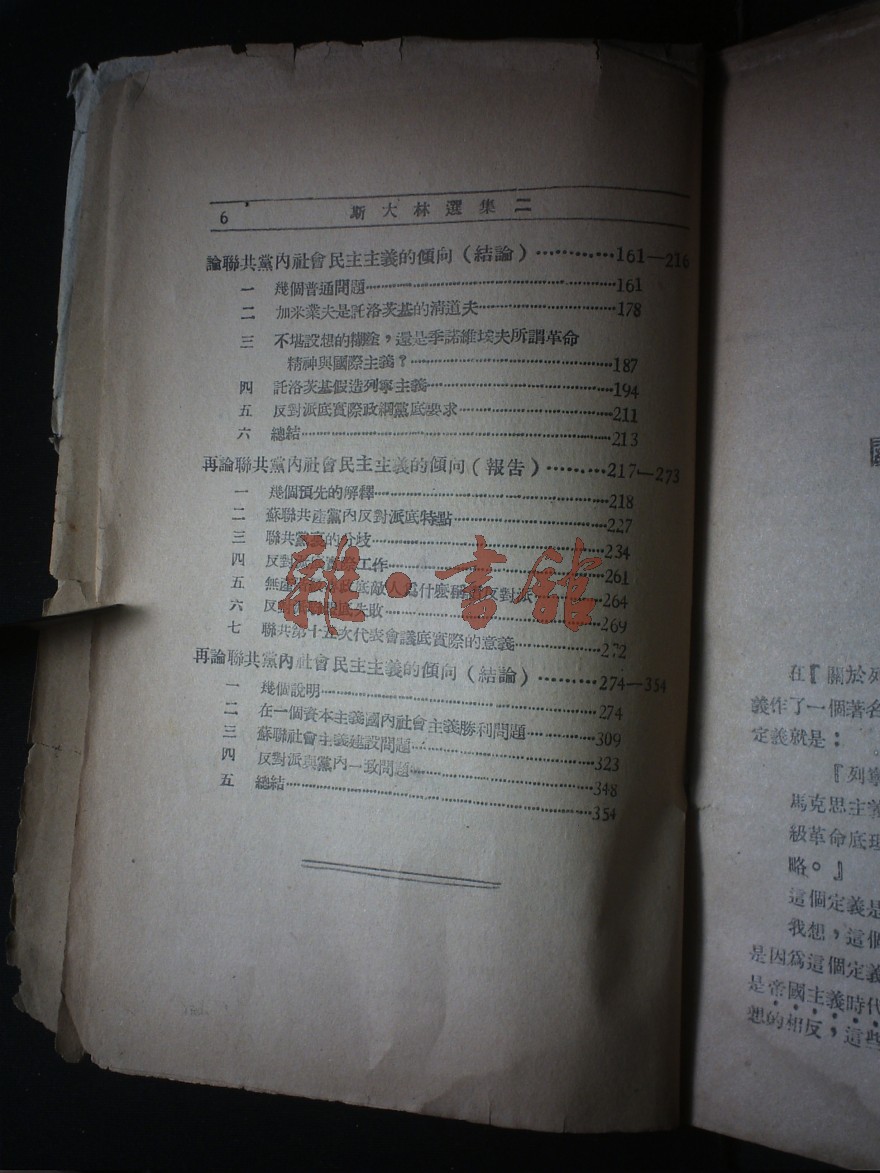 6 斯大林選集二
論聯共黨內社會民主主義的傾向(結論)············161—216
一 幾個普通問題············161
二 加米業夫是託洛茨基的清道夫············178
三 不堪設想的糊塗,還是季諾維埃夫所謂革命
精神與國際主義?············187
四 託洛茨基假造列寧主義············194
五 反對派底實際政綱黨底要求············211
六 總結············213
再論聯共黨內社會民主主義的傾向(報告)·········217—273
一 幾個預先的解釋············218
二 蘇聯共產黨內反對派底特點············227
三 聯共黨裏的分歧············234
四 反對 工作············261
五 無產 政底敵人爲什麽 反對派 264
六 反對 底失敗············269
七 聯共第十五次代表會議底實際的意義············272
再論聯共黨內社會民主主義的傾向(結論)·········274—354
一 幾個說明············274
二 在一個資本主義國內社會主義勝利問題············309
三 蘇聯社會主義建設問題············323
四 反對派與黨內一致問題············348
五 總結············354
雜·書館
在『關於列
義作了一個著名
定義就是:
『列寧
馬克思主義
級革命底理
略。』
這個定義是
我想,這個
是因爲這個定義
是帝國主義時代
想的相反,這些